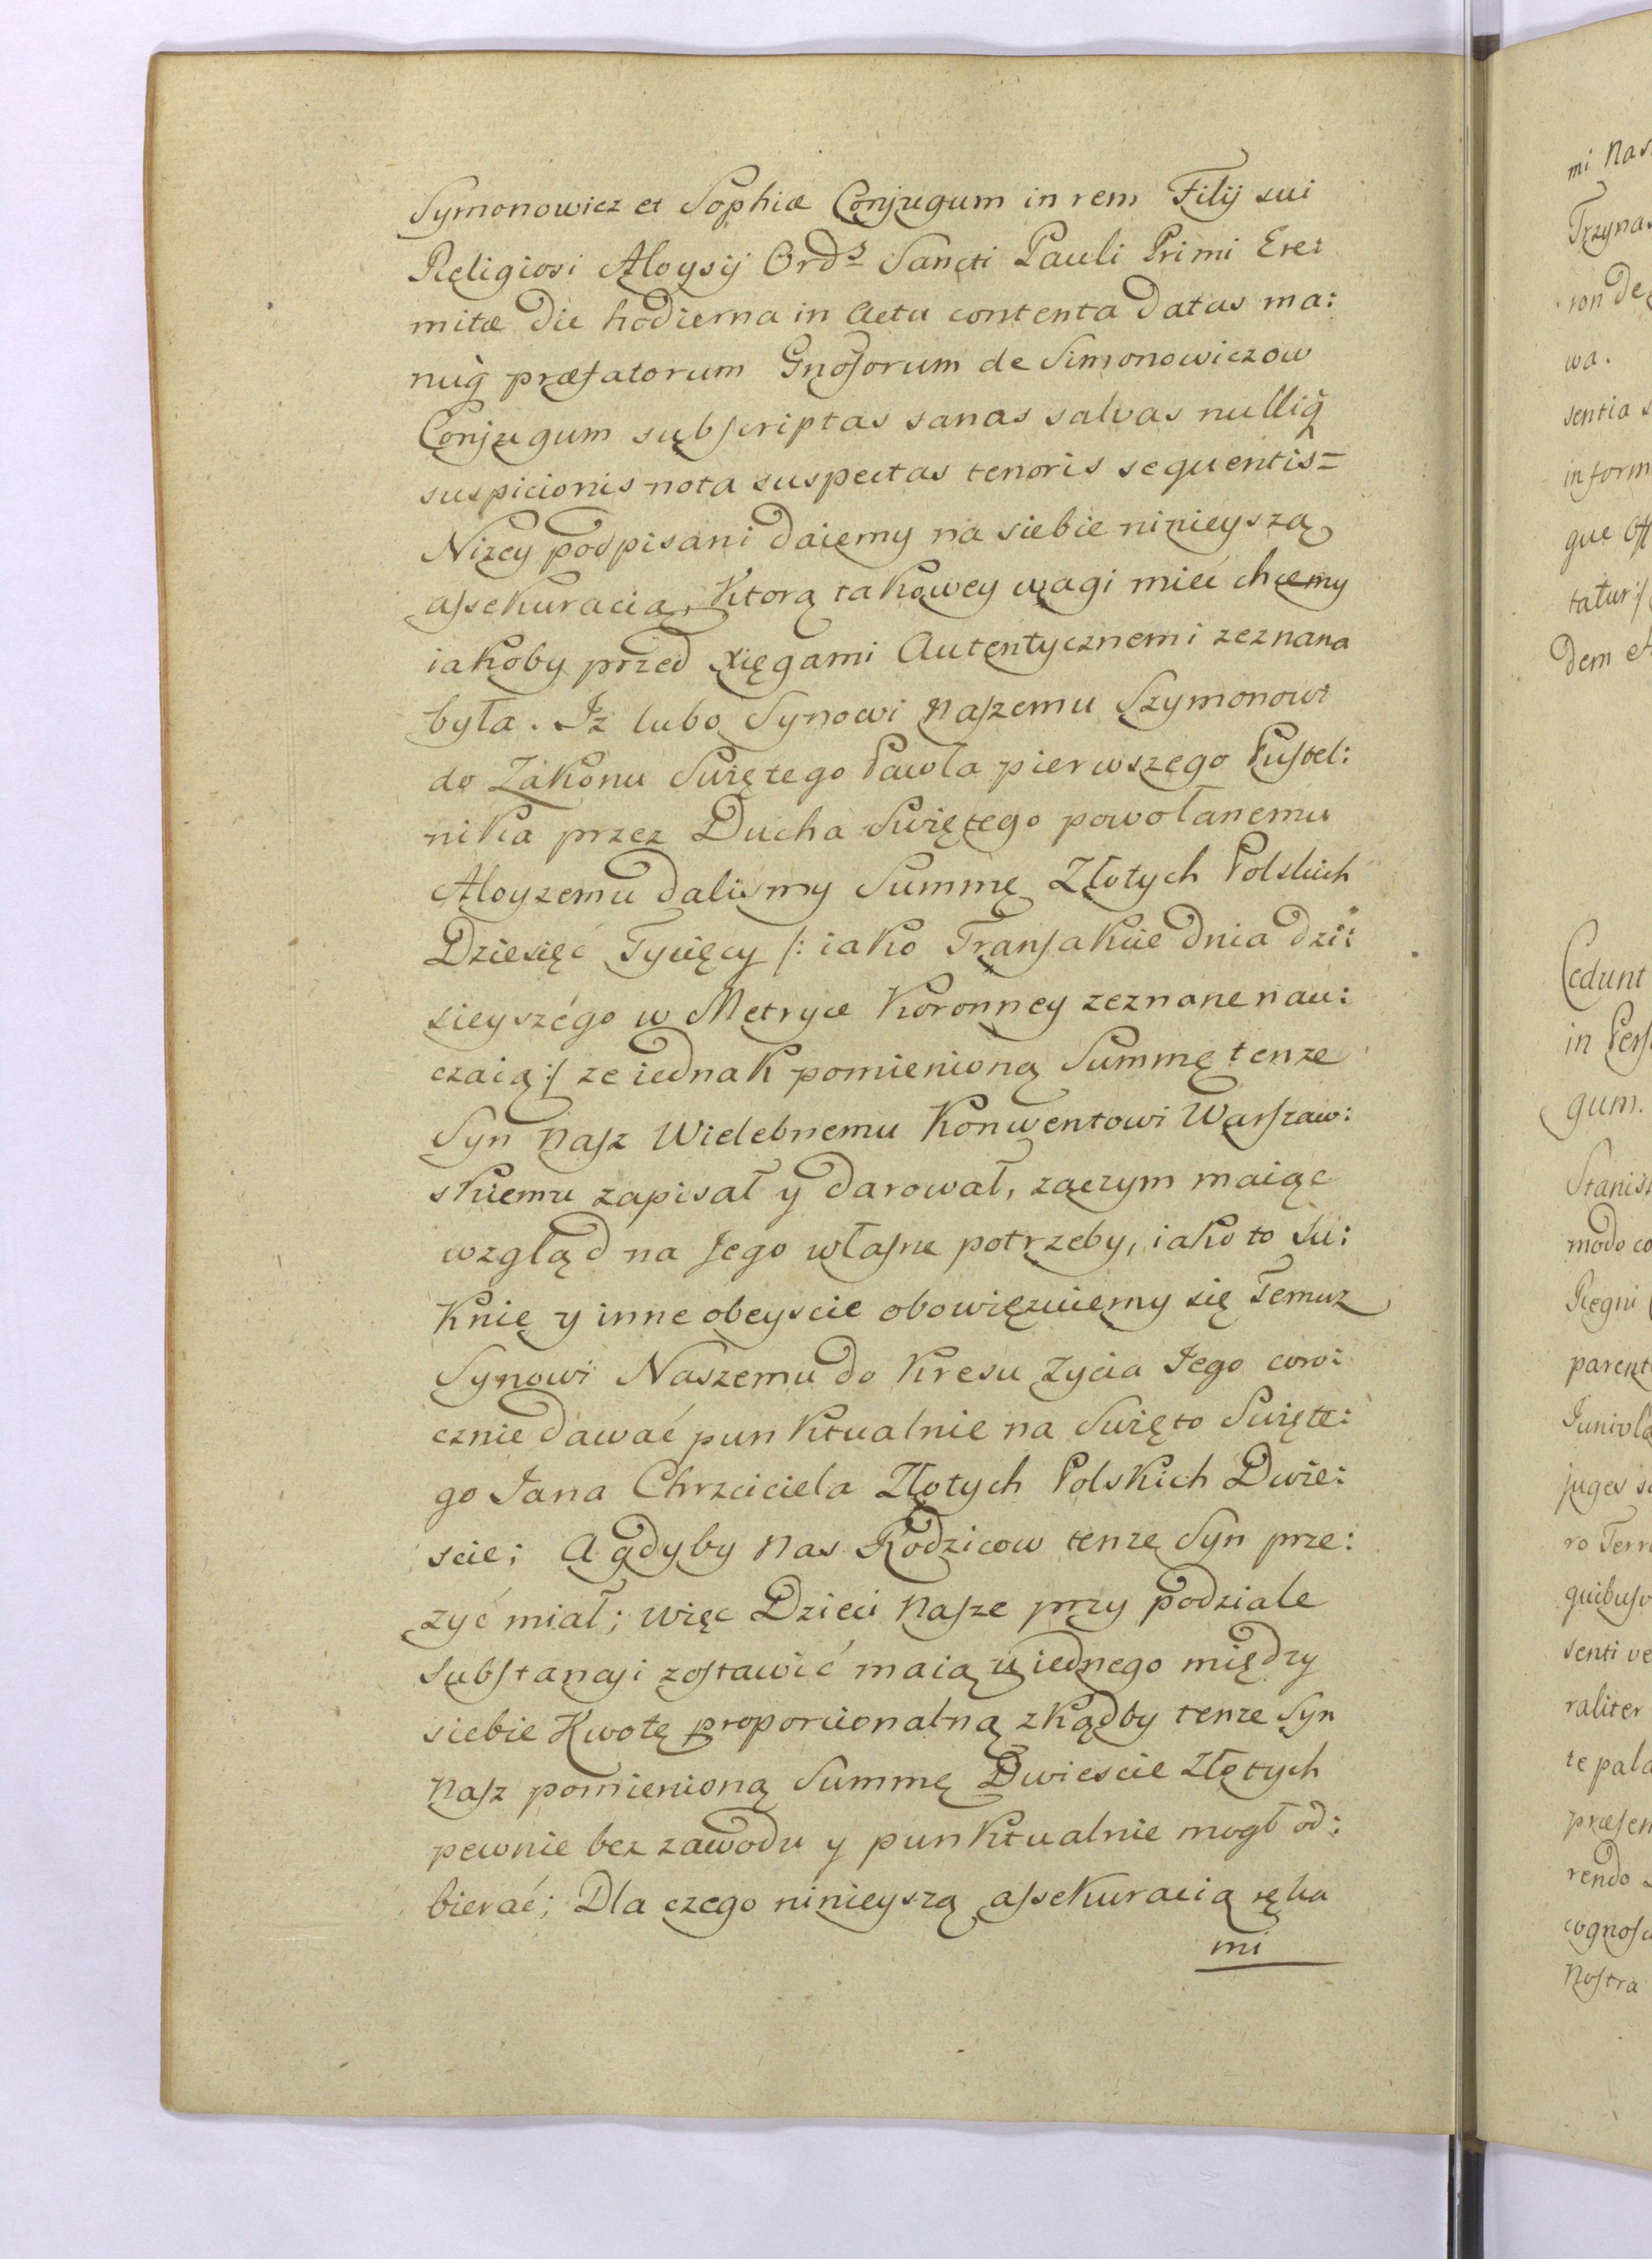 Symonowicz et Sophiæ Conjugum in rem Filij sui
Religiosi Aloysij Ord̃s Sancti Pauli Primi Ere:
mitæ die hodierna in Actu contenta datas ma:
nuq̀ præfatorum Gnoſorum de Simonowiczow
Conjugum subſcriptas sanas salvas nulliq̃
suspicionis nota suspectas tenoris sequentis=
Nizey podpisani daiemy na siebie ninieyszą
aſsekuracią, ktorą takowey wagi mieć chcemy
iakoby przed xięgami Autentycznemi zeznana
była. Iz lubo Synowi naſzemu Szymonowi
do Zakonu Swiętego Pawła pierwszego Puſtel:
nika przez Ducha Swiętego powołanemu
Aloyzemu dalismy Summę Złotych Polskich
Dziesięć Tysięcy /: iako Tranſakcie dnia dzi:
sieyszégo w Metryce Koronney zeznane nau:
czaią :/ ze iednak pomienioną Summę tenze
Syn naſz Wielebnemu Konwentowi Warſzaw:
skiemu zapisał y darował, zaczym maiąc
wzgłąd na Jego właſne potrzeby, iako to Su:
knię y inne obeyscie obowięzuiemy się Temuz
Synowi Naszemu do kresu Zycia Jego coro:
cznie dawać punktualnie na Swięto Swięte:
go Jana Chrzciciela Złotych Polskich Dwie:
scie; A gdyby nas Rodzicow tenze Syn prze:
zyć miał; więc Dzieci naſze przy podziale
Subſtancyi zoſtawić maią u iednego między
siebie Kwotę proporcionalną zkądby tenze Syn
naſz pomienioną Summę Dwiescie Złotych
pewnie bez zawodu y punktualnie mogł od:
bierać; Dla czego ninieyszą aſsekuracią ręka
mi
mi nas
Trzynas
ron de
wa.
sentia s
in form
que Off
tatur :/
dem et
Cedunt
in Perſ
gum.
Stanisł
modo co
Regni
parent
Juniv
juges s
ro Terr
quibuſv
senti ve
raliter
te pala
præſen
rendo
cognoſc
Noſtra